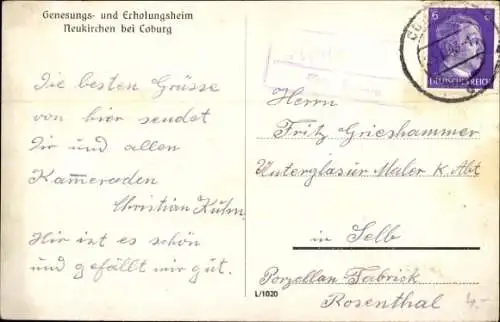 Genesungs- und Erholungsheim
Neukirchen bei Coburg
Die besten Grüsse
von hier sendet
Dir und allen
Kameraden
Christian Kuhn.
Hir ist es schön
und gefällt mir gut.
6
DEUTSCHES REICH
Herrn
Fritz Grieshammer
Unterglasür Maler K. Abt
in Selb
Porzellan Fabrick
Rosenthal
L/1020
4,-